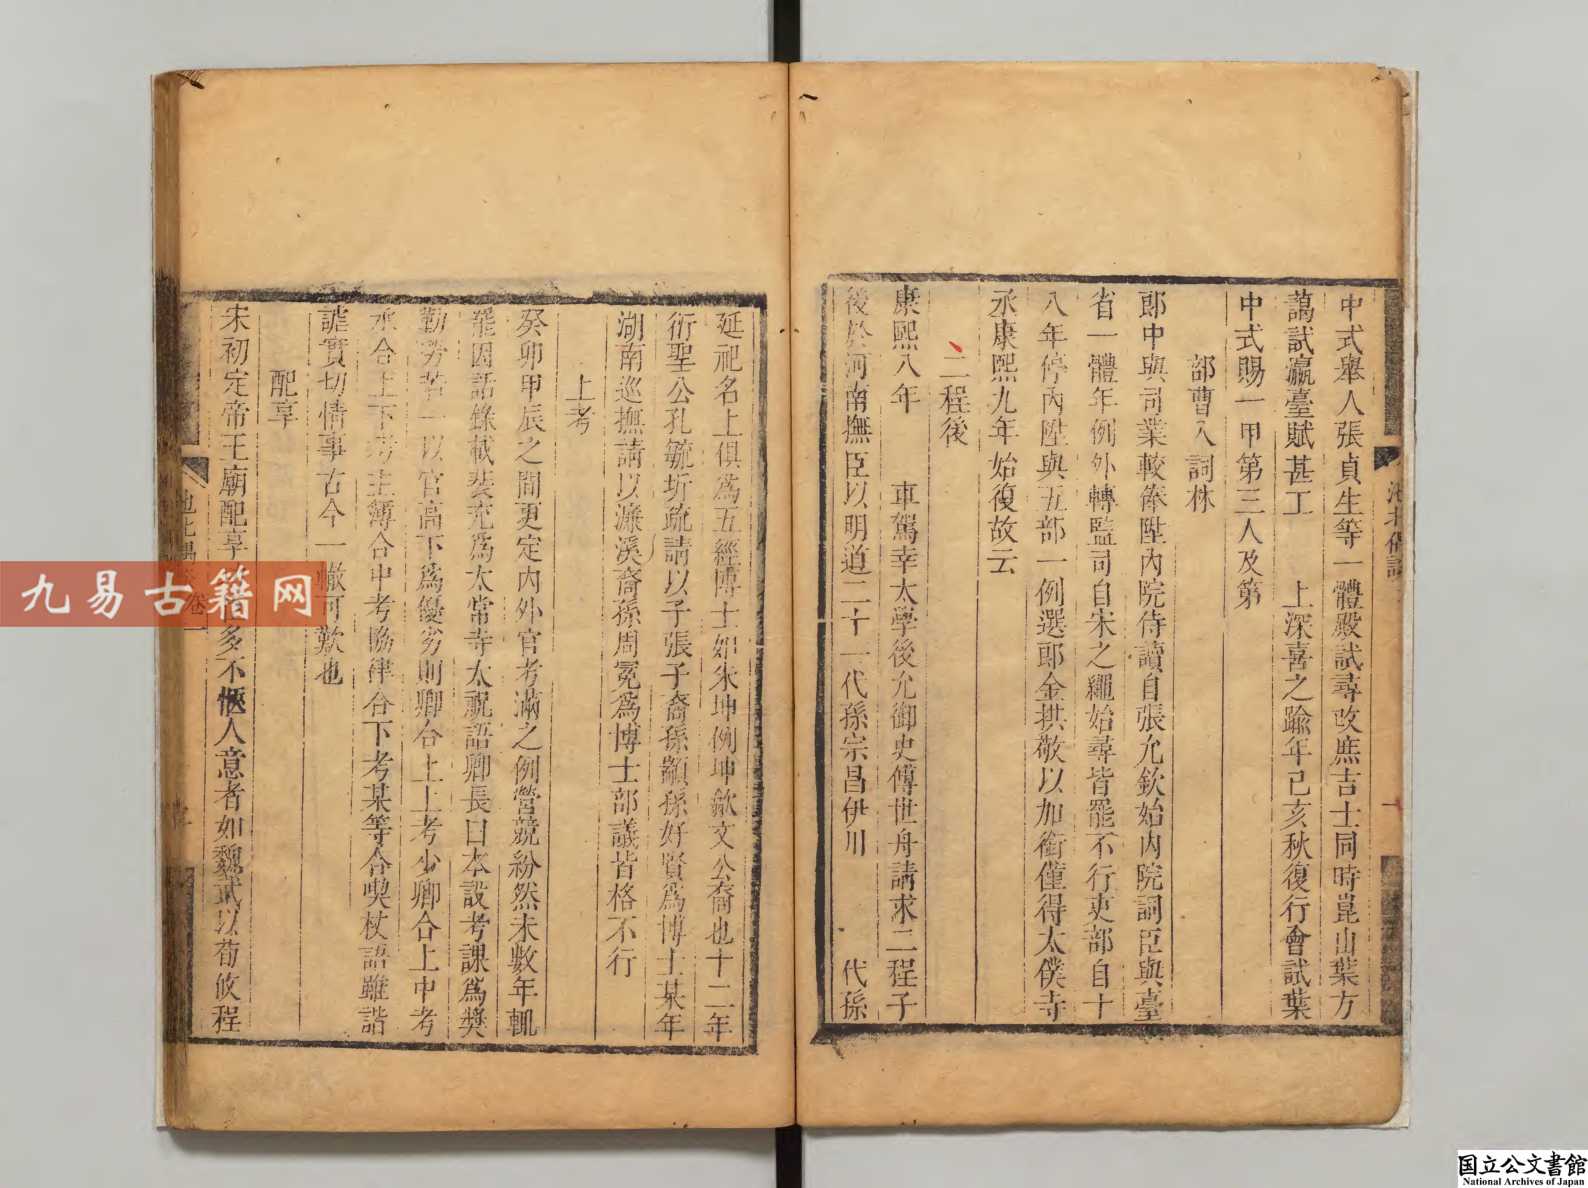 中式舉人張貞生等一體殿試尋改庶吉士同時崑山葉方
藹試瀛臺賦甚工　上深喜之踰年己亥秋復行會試葉
中式賜一甲第三人及第
部曹入詞林
郎中與司業較俸陞內院侍讀自張允欽始內院詞臣與臺
省一體年例外轉監司自宋之繩始尋皆罷不行吏部自十
八年停內陞與五部一例選郎金拱敬以加銜僅得太僕寺
丞康熙九年始復故云
二程後
康熙八年　車駕幸太學後允御史傅世舟請求二程子
後於河南撫臣以明道二十一代孫宗昌伊川　代孫
延祀名上俱爲五經博士如朱坤例坤歙文公裔也十二年
衍聖公孔毓圻疏請以子張子裔孫顓孫好賢爲博士某年
湖南巡撫請以濂溪裔孫周冕爲博士部議皆格不行
上考
癸卯甲辰之間更定內外官考滿之例營競紛然未數年輒
罷因話錄栻裴充爲太常寺太祝語卿長曰本設考課爲獎
勤勞若一以官高下爲優劣則卿合上上考少卿合上中考
丞合上下考主簿合中考協律合下考某等合喫杖語雖詣
謔實切情事古今一轍可歎也
配享
宋初定帝王廟配享 多不愜人意者如魏武以荀攸程
池北偶談
卷一
九易古籍网
国立公文書館
National Archives of Japan